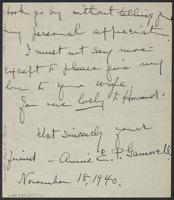 book go by without telling you
my personal appreciation
I must not say more—
except to please give my
love to your wife
You were lovely to Howard.
Most sincerely your
friend — Annie E. P. Gamwell
November 18, 1940.